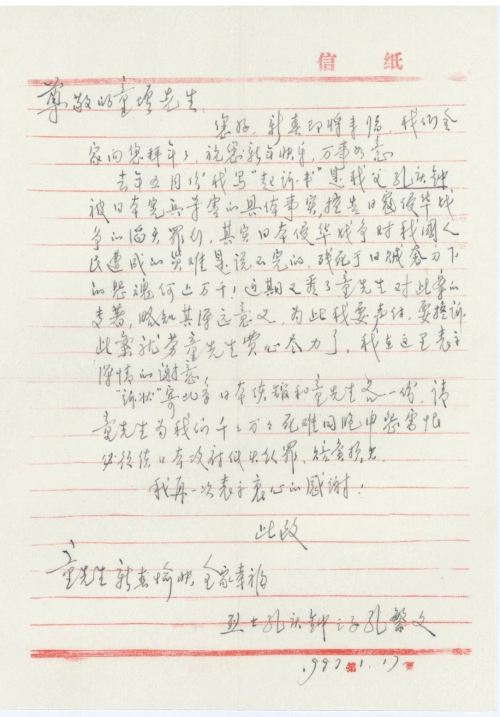 信 纸
尊敬的童增先生
您好，新春即将来临，我们全
家向您拜年了，祝您新年快乐，万事如意
去年五月份我写"起诉书"是我父孔庆钟
被日本宪兵杀害的具体事实，控告日寇侵华战
争的滔天罪行，其实日本侵华战争对我国人
民造成的灾难是说不完的，残死于日贼屠刀下
的怨魂何止万千！近期又看了童先生对此案的
专著，略知其深远意义，为此我要声体，要控诉
此案就劳童先生费心尽力了，我在这里表示
深情的谢意
"诉状"寄北京日本领馆和童先生各一份，请
童先生为我们千千万万死难同胞申冤雪恨
必须使日本政府低头认罪，
我再一次表示衷心的感谢！
此致
童先生新春愉快 全家幸福
烈士孔庆钟之子孔繁文
1993 1.17